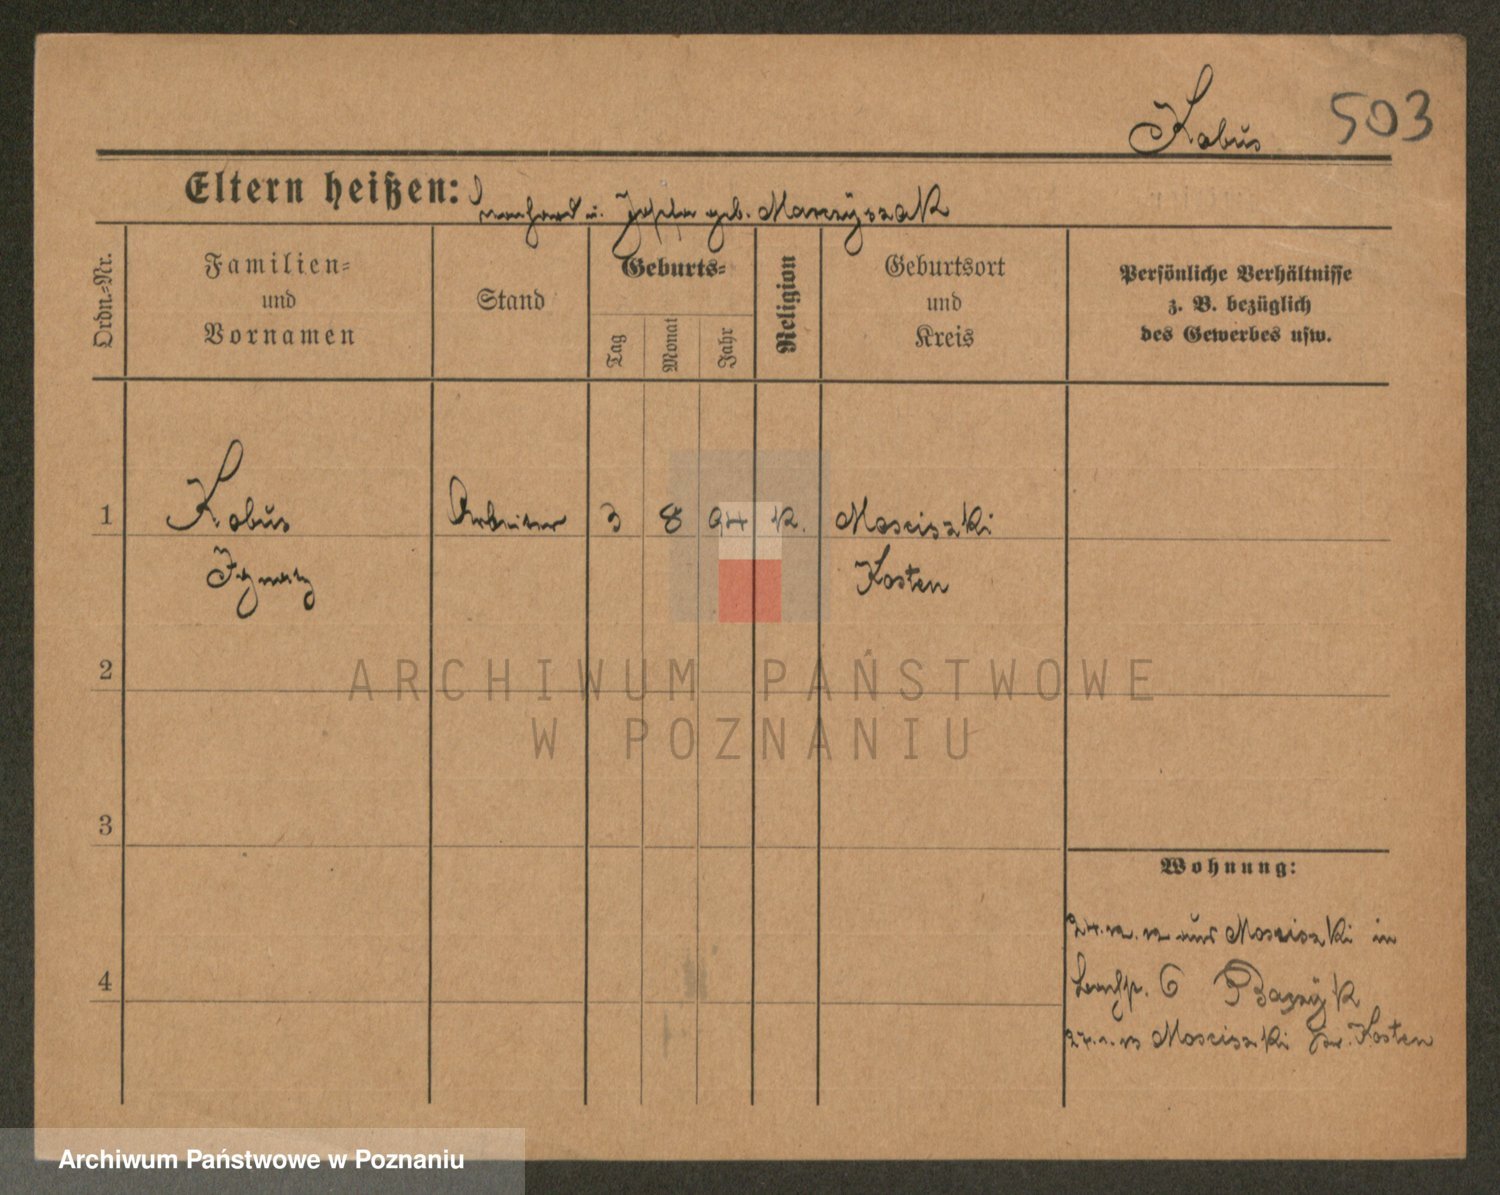 Kobus 503
Eltern heißen: u. Josefa geb. Marczyszak
Ordn.=Nr.
Familien=
und
Vornamen
Stand
Geburts=
Tag
Monat
Jahr
Religion
Geburtsort
und
Kreis
Persönliche Verhältnisse
z. B. bezüglich
des Gewerbes usw.
1 Kobus Arbeiter 3 8 94 k. Mosciszki
Ignatz Kosten
2
3
4
Wohnung:
24.12.12 aus Mosciszki in
6
Mosciszki Kr. Kosten
ARCHIWUM PAŃSTWOWE
W POZNANIU
Archiwum Państwowe w Poznaniu